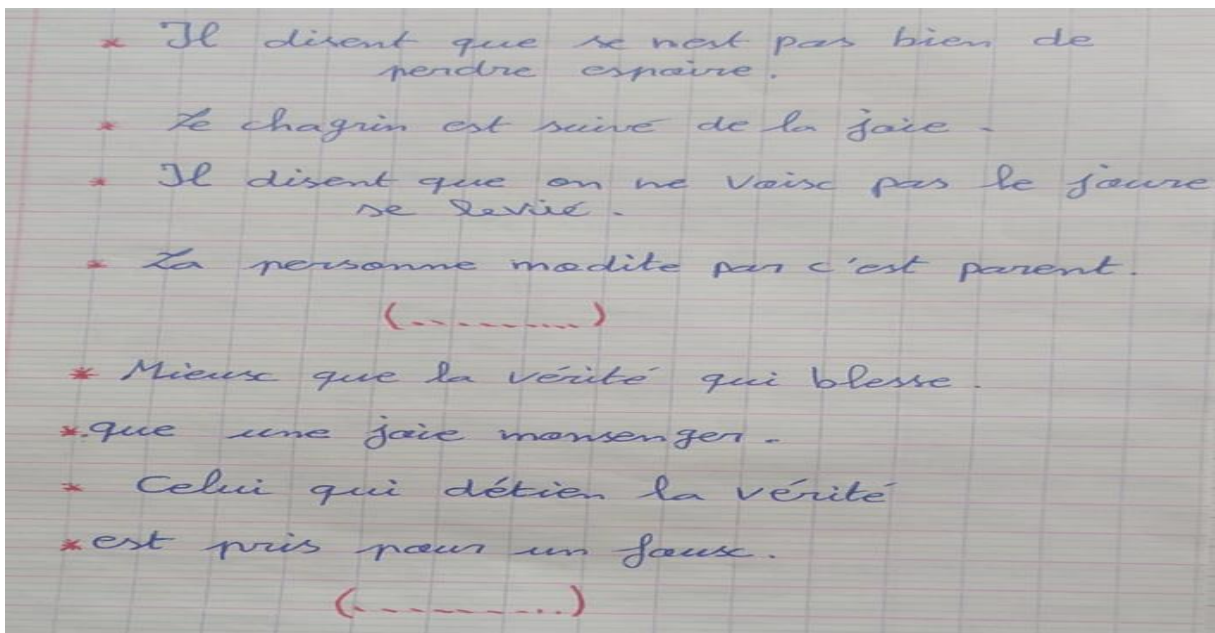 * Il disent que se nest pas bien de
perdre espaire.
* Le chagrin est suivé de la joie.
* Il disent que on ne voise pas le joure
se levié.
* La personne modite par c'est parent.
(..........)
* Mieux que la vérité qui blesse.
*.que une joie monsenger.
* Celui qui détien la vérité
*est pris pour un faux.
(..........)